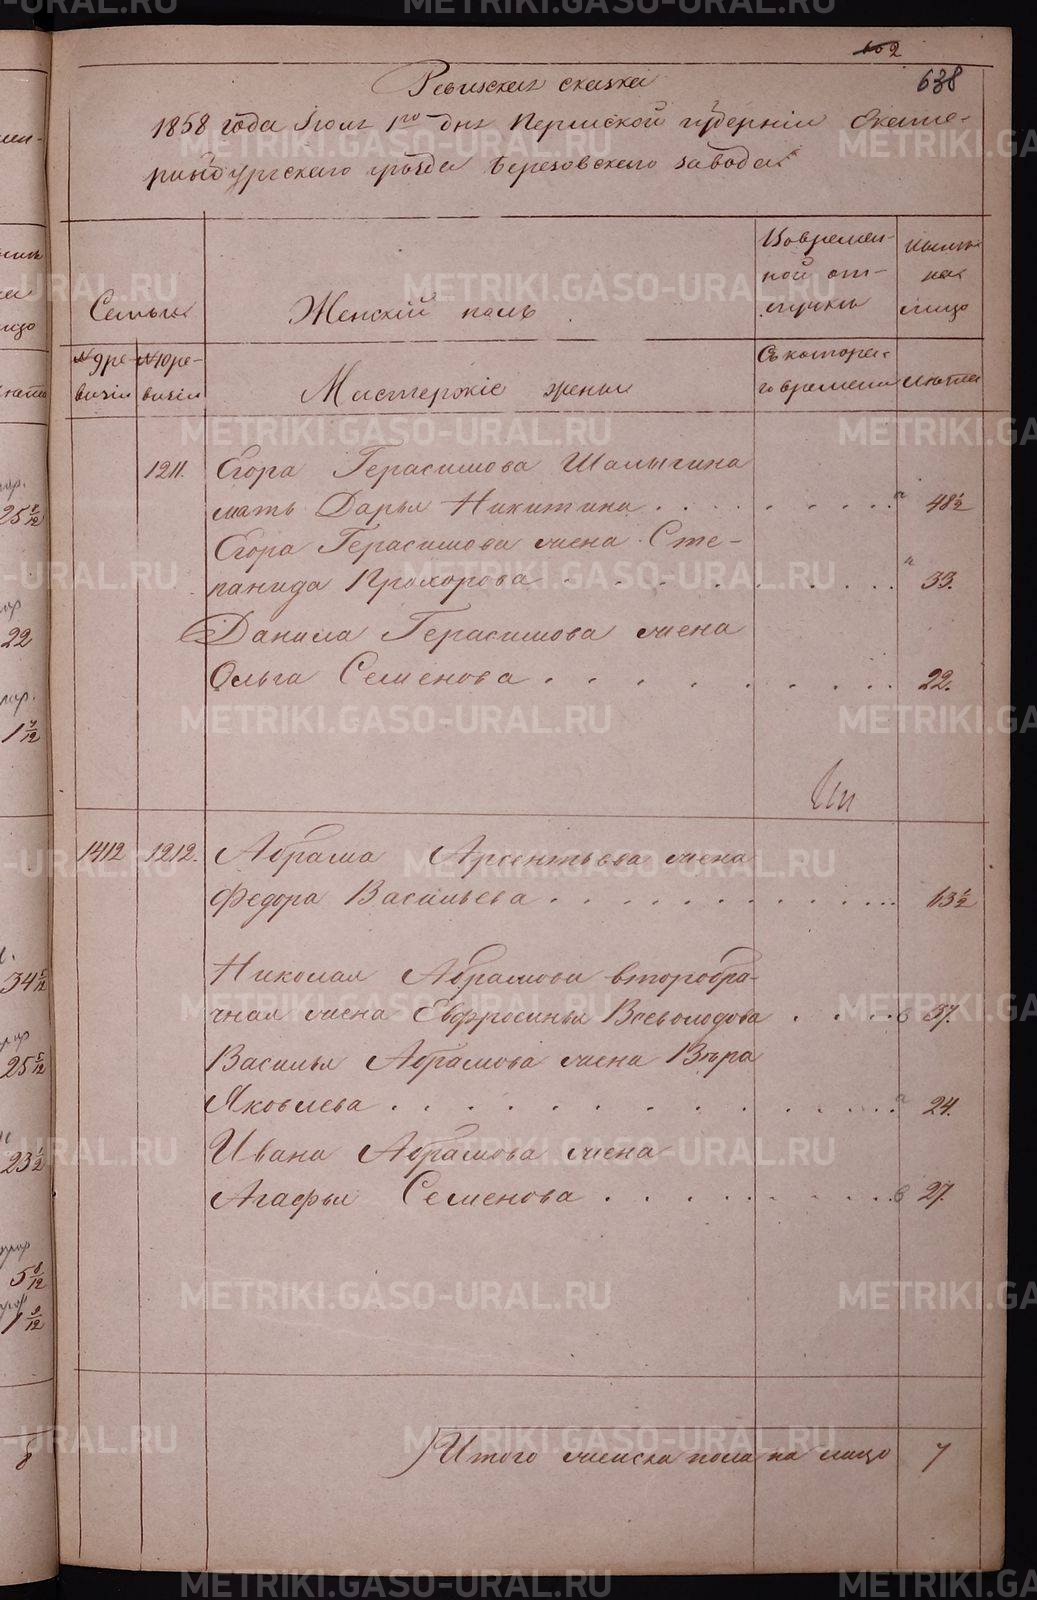 662
638
Ревизская сказка
1858 года Iюля 1го дня Пермской губернiи Екате-
ринбургскаго уѣзда Березовскаго завода
Семьи
Женскiй полъ
Во времен-
ной от-
лучки
ныне
на
лицо
№ 9 ре-
визiи
№ 10 ре-
визiи
Мастерскiе жены
Съ которо-
го времени
лета
1211.
Егора Герасимова Шалыгина
мать Дарья Никитина . . . . . . . . . 48½
Егора Герасимова жена Сте-
панида Прохорова . . . . . . . . . 33.
Данила Герасимова жена
Ольга Семенова . . . . . . . . . 22.
1412 1212. Абрама Арсентьева жена
Федора Васильева . . . . . . . . . 63½
Николая Абрамова второбра-
чная жена Евфросинья Всеволодова . . . . в 37.
Василья Абрамова жена Вѣра
Яковлева . . . . . . . . . . . . . 24.
Ивана Абрамова жена
Агафья Семенова . . . . . . . . . в 27.
Итого женска пола на лицо 7
METRIKI.GASO-URAL.RU